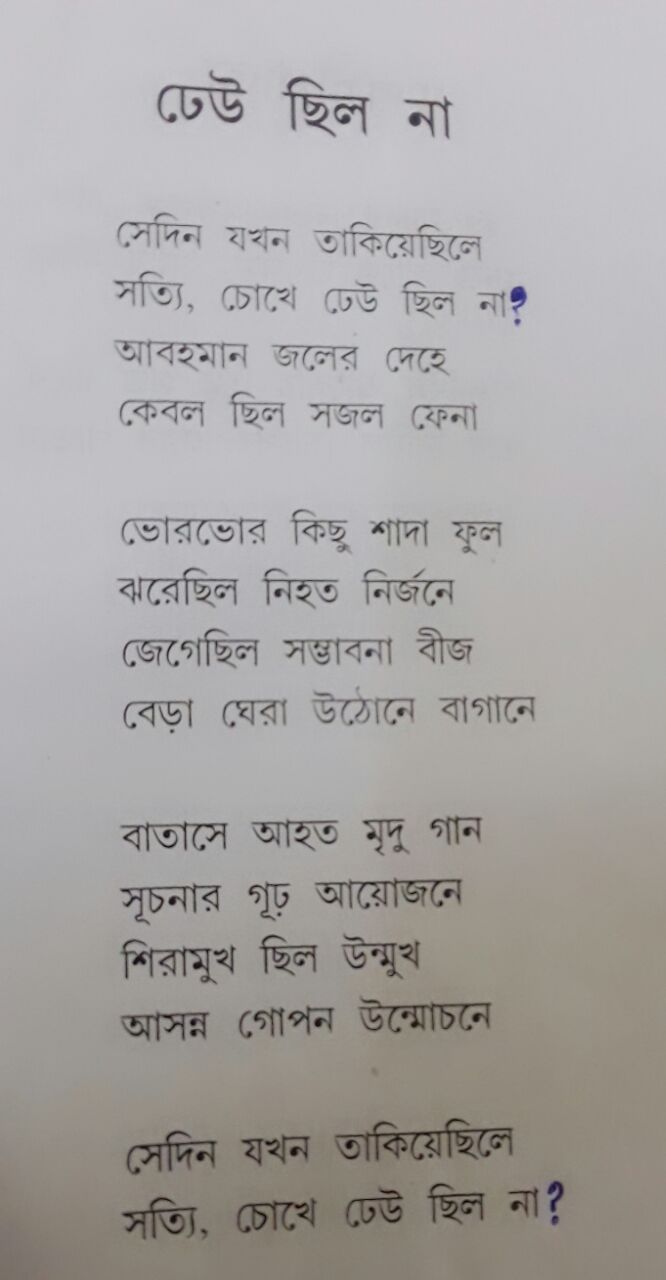 ঢেউ ছিল না
সেদিন যখন তাকিয়েছিলে
সত্যি, চোখে ঢেউ ছিল না?
আবহমান জলের দেহে
কেবল ছিল সজল ফেনা
ভোরভোর কিছু শাদা ফুল
ঝরেছিল নিহত নির্জনে
জেগেছিল সম্ভাবনা বীজ
বেড়া ঘেরা উঠোনে বাগানে
বাতাসে আহত মৃদু গান
সূচনার গূঢ় আয়োজনে
শিরামুখ ছিল উন্মুখ
আসন্ন গোপন উন্মোচনে
সেদিন যখন তাকিয়েছিলে
সত্যি, চোখে ঢেউ ছিল না?